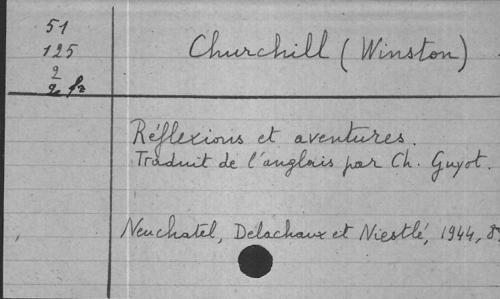 51
125
2
Churchill (Winston)
Réflexions et aventures.
Traduit de l'anglais par Ch. Guyot.
Neuchatel, Delachaux et Niestlé, 1944, 8°